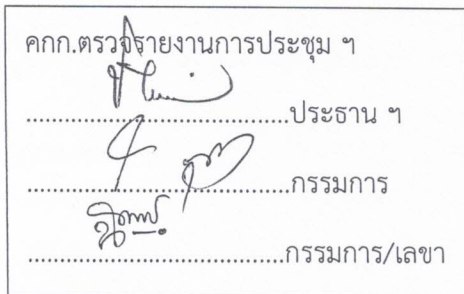 คกก.ตรวจรายงานการประชุม ฯ
..........................................ประธาน ฯ
..........................................กรรมการ
..........................................กรรมการ/เลขา